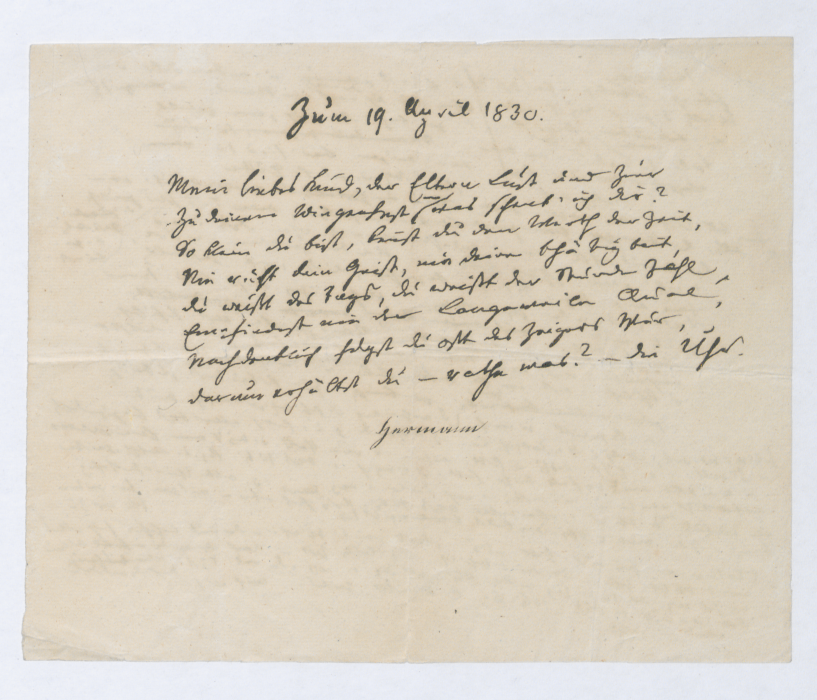 Zum 19. April 1830.
Mein liebes Kind, der Eltern Lust und Zier
Zu deinem Wiegenfest was schenk' ich dir?
So klein du bist, kennst du den Werth der Zeit,
Nie ruht dein Geist, nie deine Thätigkeit,
du weißt des Tags, du weißt der Stunde Zahl,
Empfindest nie der Langeweile Qual,
Nachdenklich folgst du oft des Zeigers Spur,
darum erhältst du – rathe was? – die Uhr.
Hermann